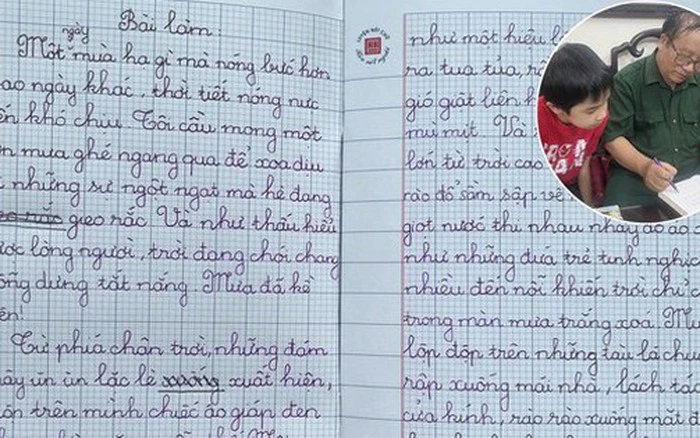 Bài làm:
ngày
Một mùa hạ gì mà nóng bức hơn
ao ngày khác, thời tiết nóng nực
ến khó chịu Tôi cầu mong một
n mưa ghé ngang qua để xoa dịu
những sự ngột ngạt mà hè đang
gieo rắc Và như thấu hiểu
ược lòng người, trời đang chói chang
ỗng dưng tắt nắng Mưa đã kề
ên!
Từ phía chân trời, những đám
ây ùn ùn lặc lè xuống xuất hiện,
ên mình chiếc áo giáp đen
như một hiệu l
ra tua tủa, r
gió giật liên h
mù mịt. Và
lớn từ trời cao
rào đổ sầm sập về
giọt nước thi nhau nhảy ào ào
như những đứa trẻ tinh nghịc
nhiều đến nỗi khiến trời chỉ c
trong màn mưa trắng xoá. M
lộp độp trên những tàu lá chu
rập xuống mái nhà, lách tá
cửa kính, rào rào xuống mặt